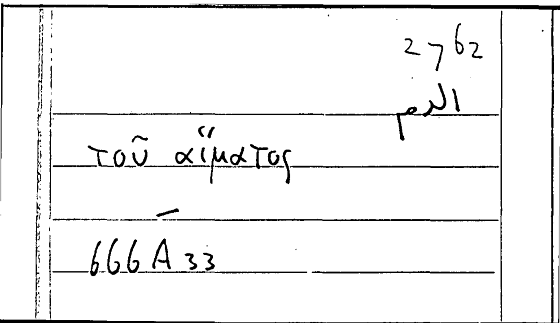 2762
الدم
τοῦ αἵματος
666Ā33